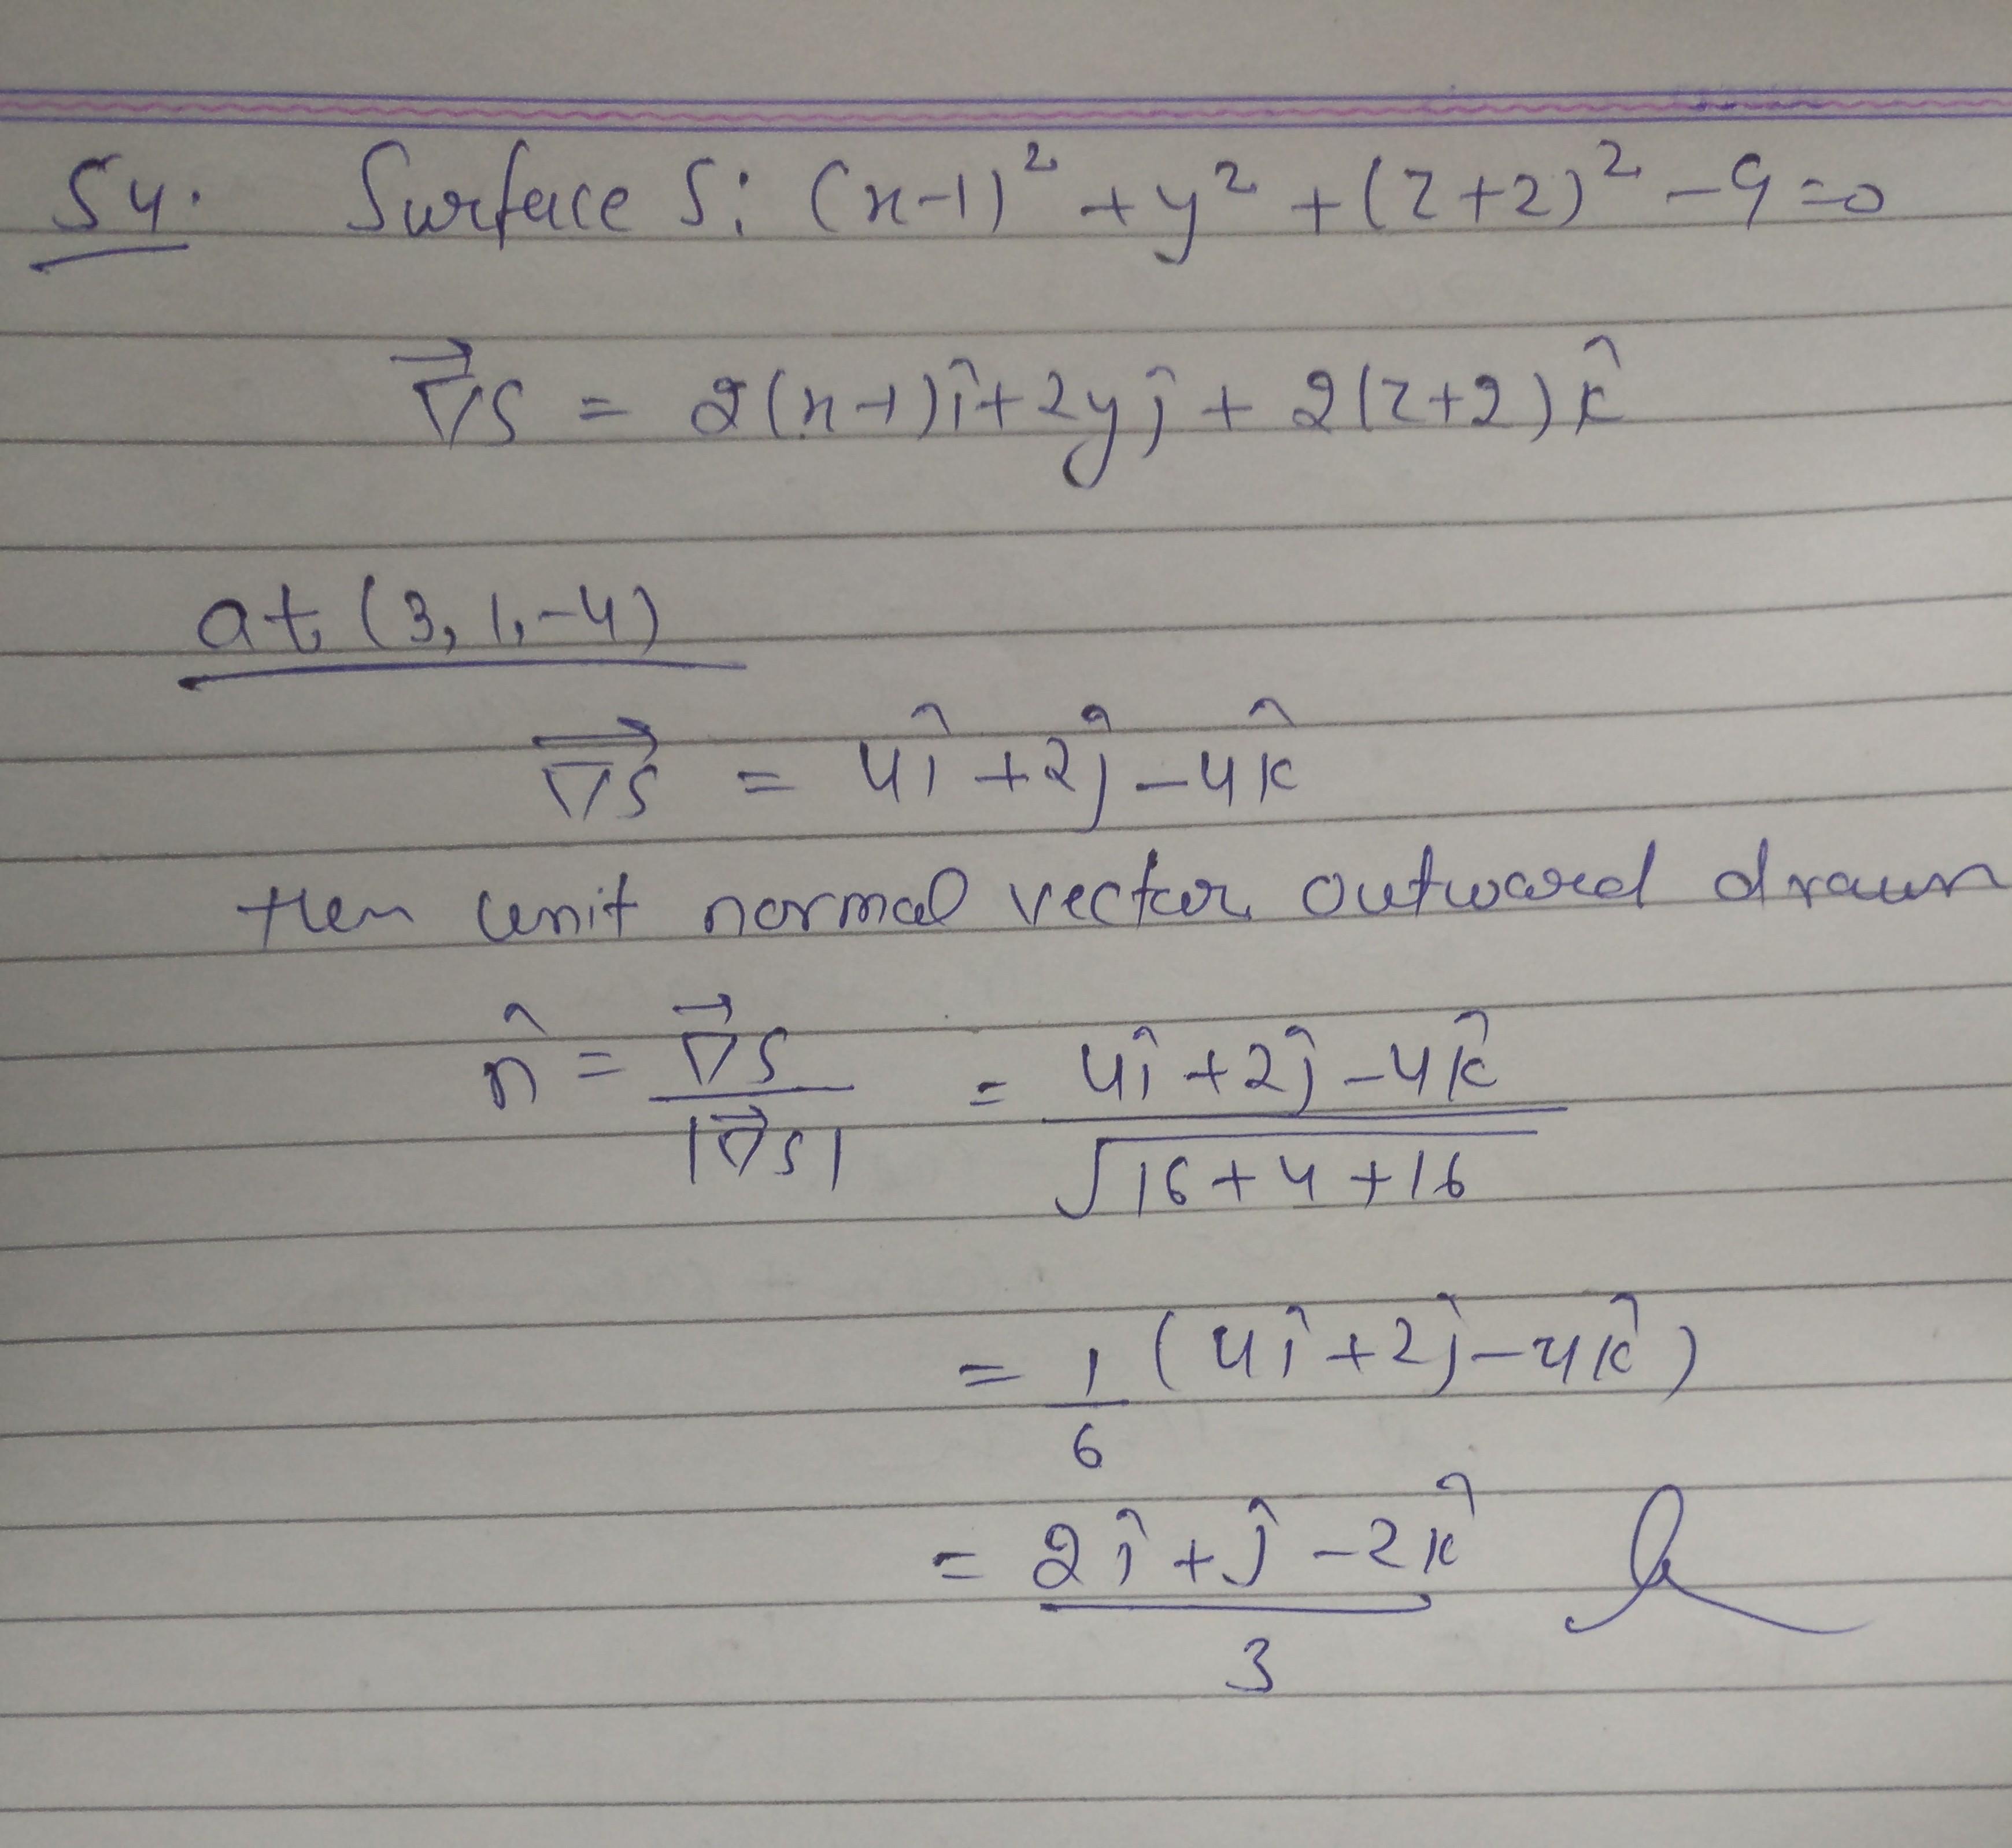 54. Surface S: (x-1)² + y² + (z+2)² - 9 = 0
∇⃗S = 2(x-1)î + 2yĵ + 2(z+2)k̂
at (3, 1, -4)
∇⃗S = 4î + 2ĵ - 4k̂
then unit normal vector outward drawn
n̂ = ∇⃗S / |∇⃗S| = 4î + 2ĵ - 4k̂ / √16+4+16
= 1/6 (4î + 2ĵ - 4k̂)
= 2î + ĵ - 2k̂ / 3